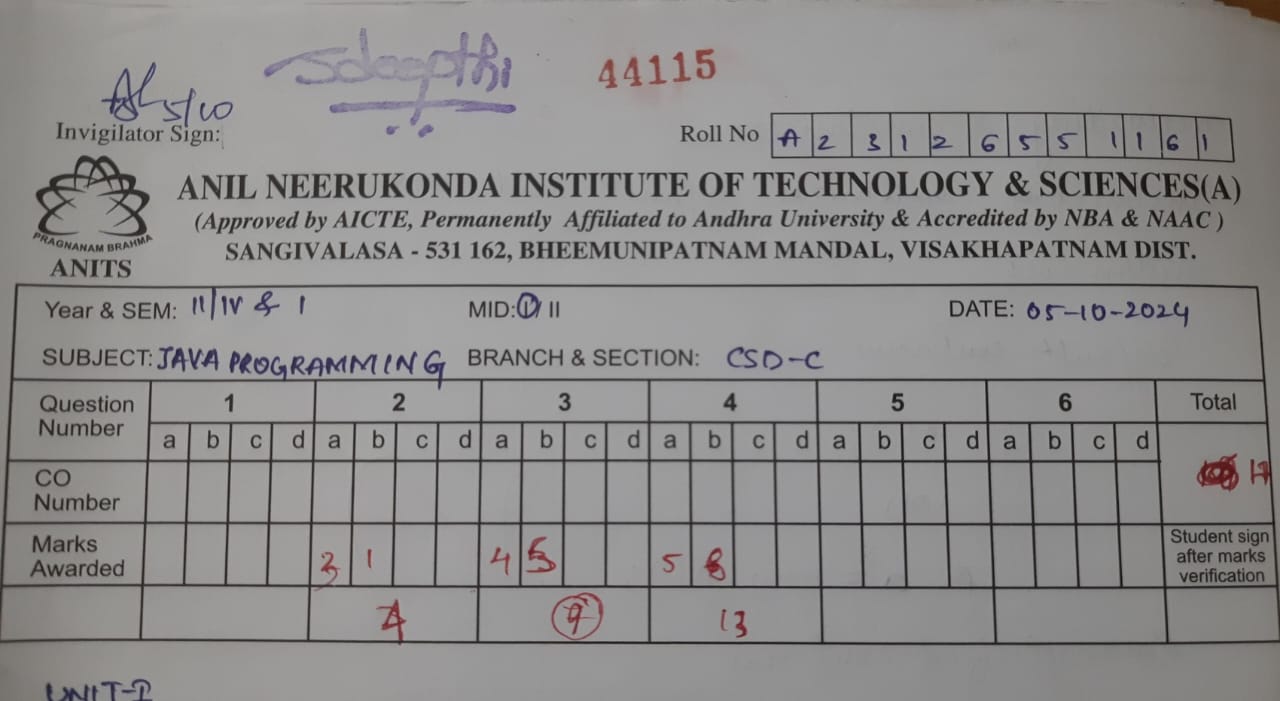 Sdeepthi
44115
5/10
Invigilator Sign:
Roll No A 2 3 1 2 6 5 5 1 1 6 1
ANIL NEERUKONDA INSTITUTE OF TECHNOLOGY & SCIENCES(A)
(Approved by AICTE, Permanently Affiliated to Andhra University & Accredited by NBA & NAAC)
SANGIVALASA - 531 162, BHEEMUNIPATNAM MANDAL, VISAKHAPATNAM DIST.
PRAGNANAM BRAHMA
ANITS
Year & SEM: II/IV & I MID: I/ II DATE: 05-10-2024
SUBJECT: JAVA PROGRAMMING BRANCH & SECTION: CSD-C
Question Number 1 2 3 4 5 6 Total
a b c d a b c d a b c d a b c d a b c d a b c d
CO Number 17
Marks Awarded 3 1 4 5 5 8 Student sign after marks verification
4 9 13
UNIT-I